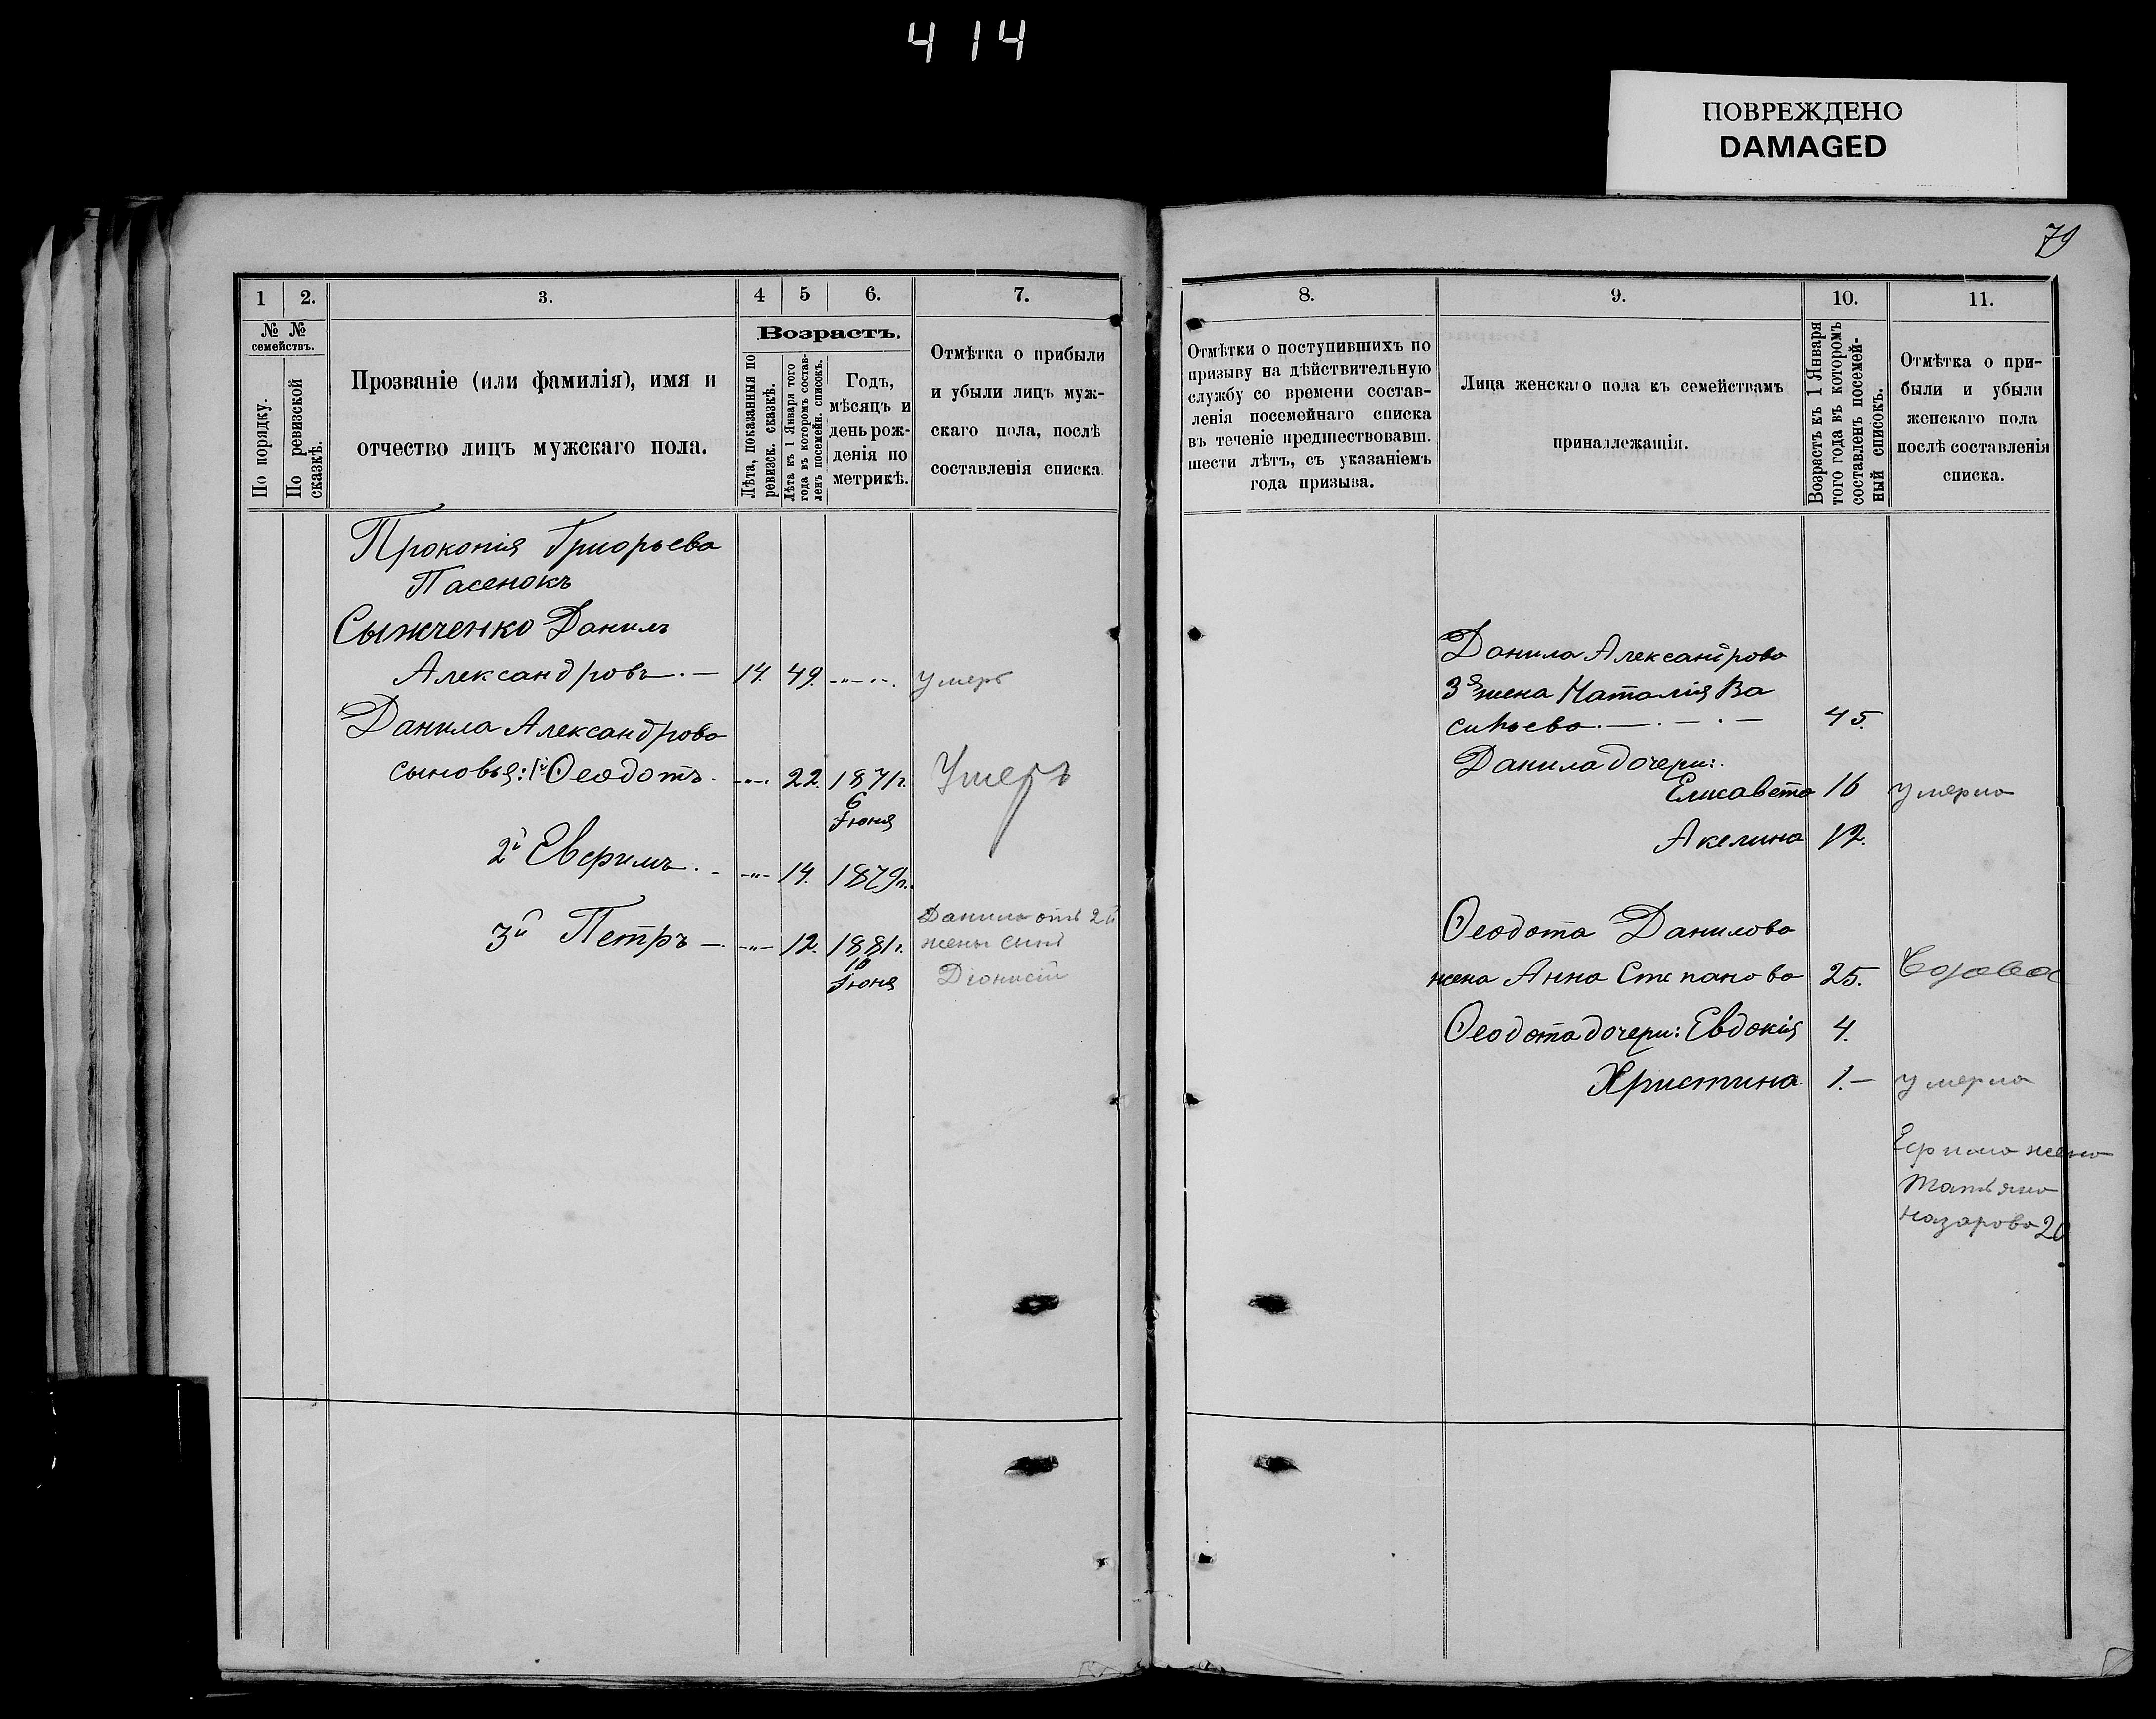 414
ПОВРЕЖДЕНО
DAMAGED
79
1
2.
3.
4
5
6.
7.
№ №
семействъ.
По порядку.
По ревизской
сказкѣ.
Прозваніе (или фамилія), имя и
отчество лицъ мужскаго пола.
Возрастъ.
Лѣта, показанныя по
ревизск. сказкѣ.
Лѣта къ 1 Января того
года въ которомъ состав-
ленъ посемейн. списокъ.
Годъ,
мѣсяцъ и
день рож-
денія по
метрикѣ.
Отмѣтка о прибыли
и убыли лицъ муж-
скаго пола, послѣ
составленія списка
Прокопія Григорьева
Пасенокъ
Данилъ
Александровъ. — 14. 49. умеръ
Данила Александрова
сыновья: 1й Ѳеодотъ. 22. 1871г. Умеръ
6
Іюня
2й Евфимъ. 14. 1879г.
3й Петръ — 12. 1881г.
10
Іюня
Данила отъ 2й
жены сынъ
Діонисій
8.
9.
10.
11.
Отмѣтки о поступившихъ по
призыву на дѣйствительную
службу со времени состав-
ленія посемейнаго списка
въ теченіе предшествовавш.
шести лѣтъ, съ указаніемъ
года призыва.
Лица женскаго пола къ семействамъ
принадлежащія.
Возрастъ къ 1 Января
того года въ которомъ
составленъ посемей-
ный списокъ.
Отмѣтка о при-
были и убыли
женскаго пола
послѣ составленія
списка.
Данила Александрова
3я жена Наталія Ва
сильева. — 45.
Данила дочери:
Елисавета 16 умерла
Акелина 12.
Ѳеодота Данилова
жена Анна Степанова 25.
Ѳеодота дочери: Евдокія 4.
Христина 1. — умерла
Ефима жена
Татьяна
Назарова 20